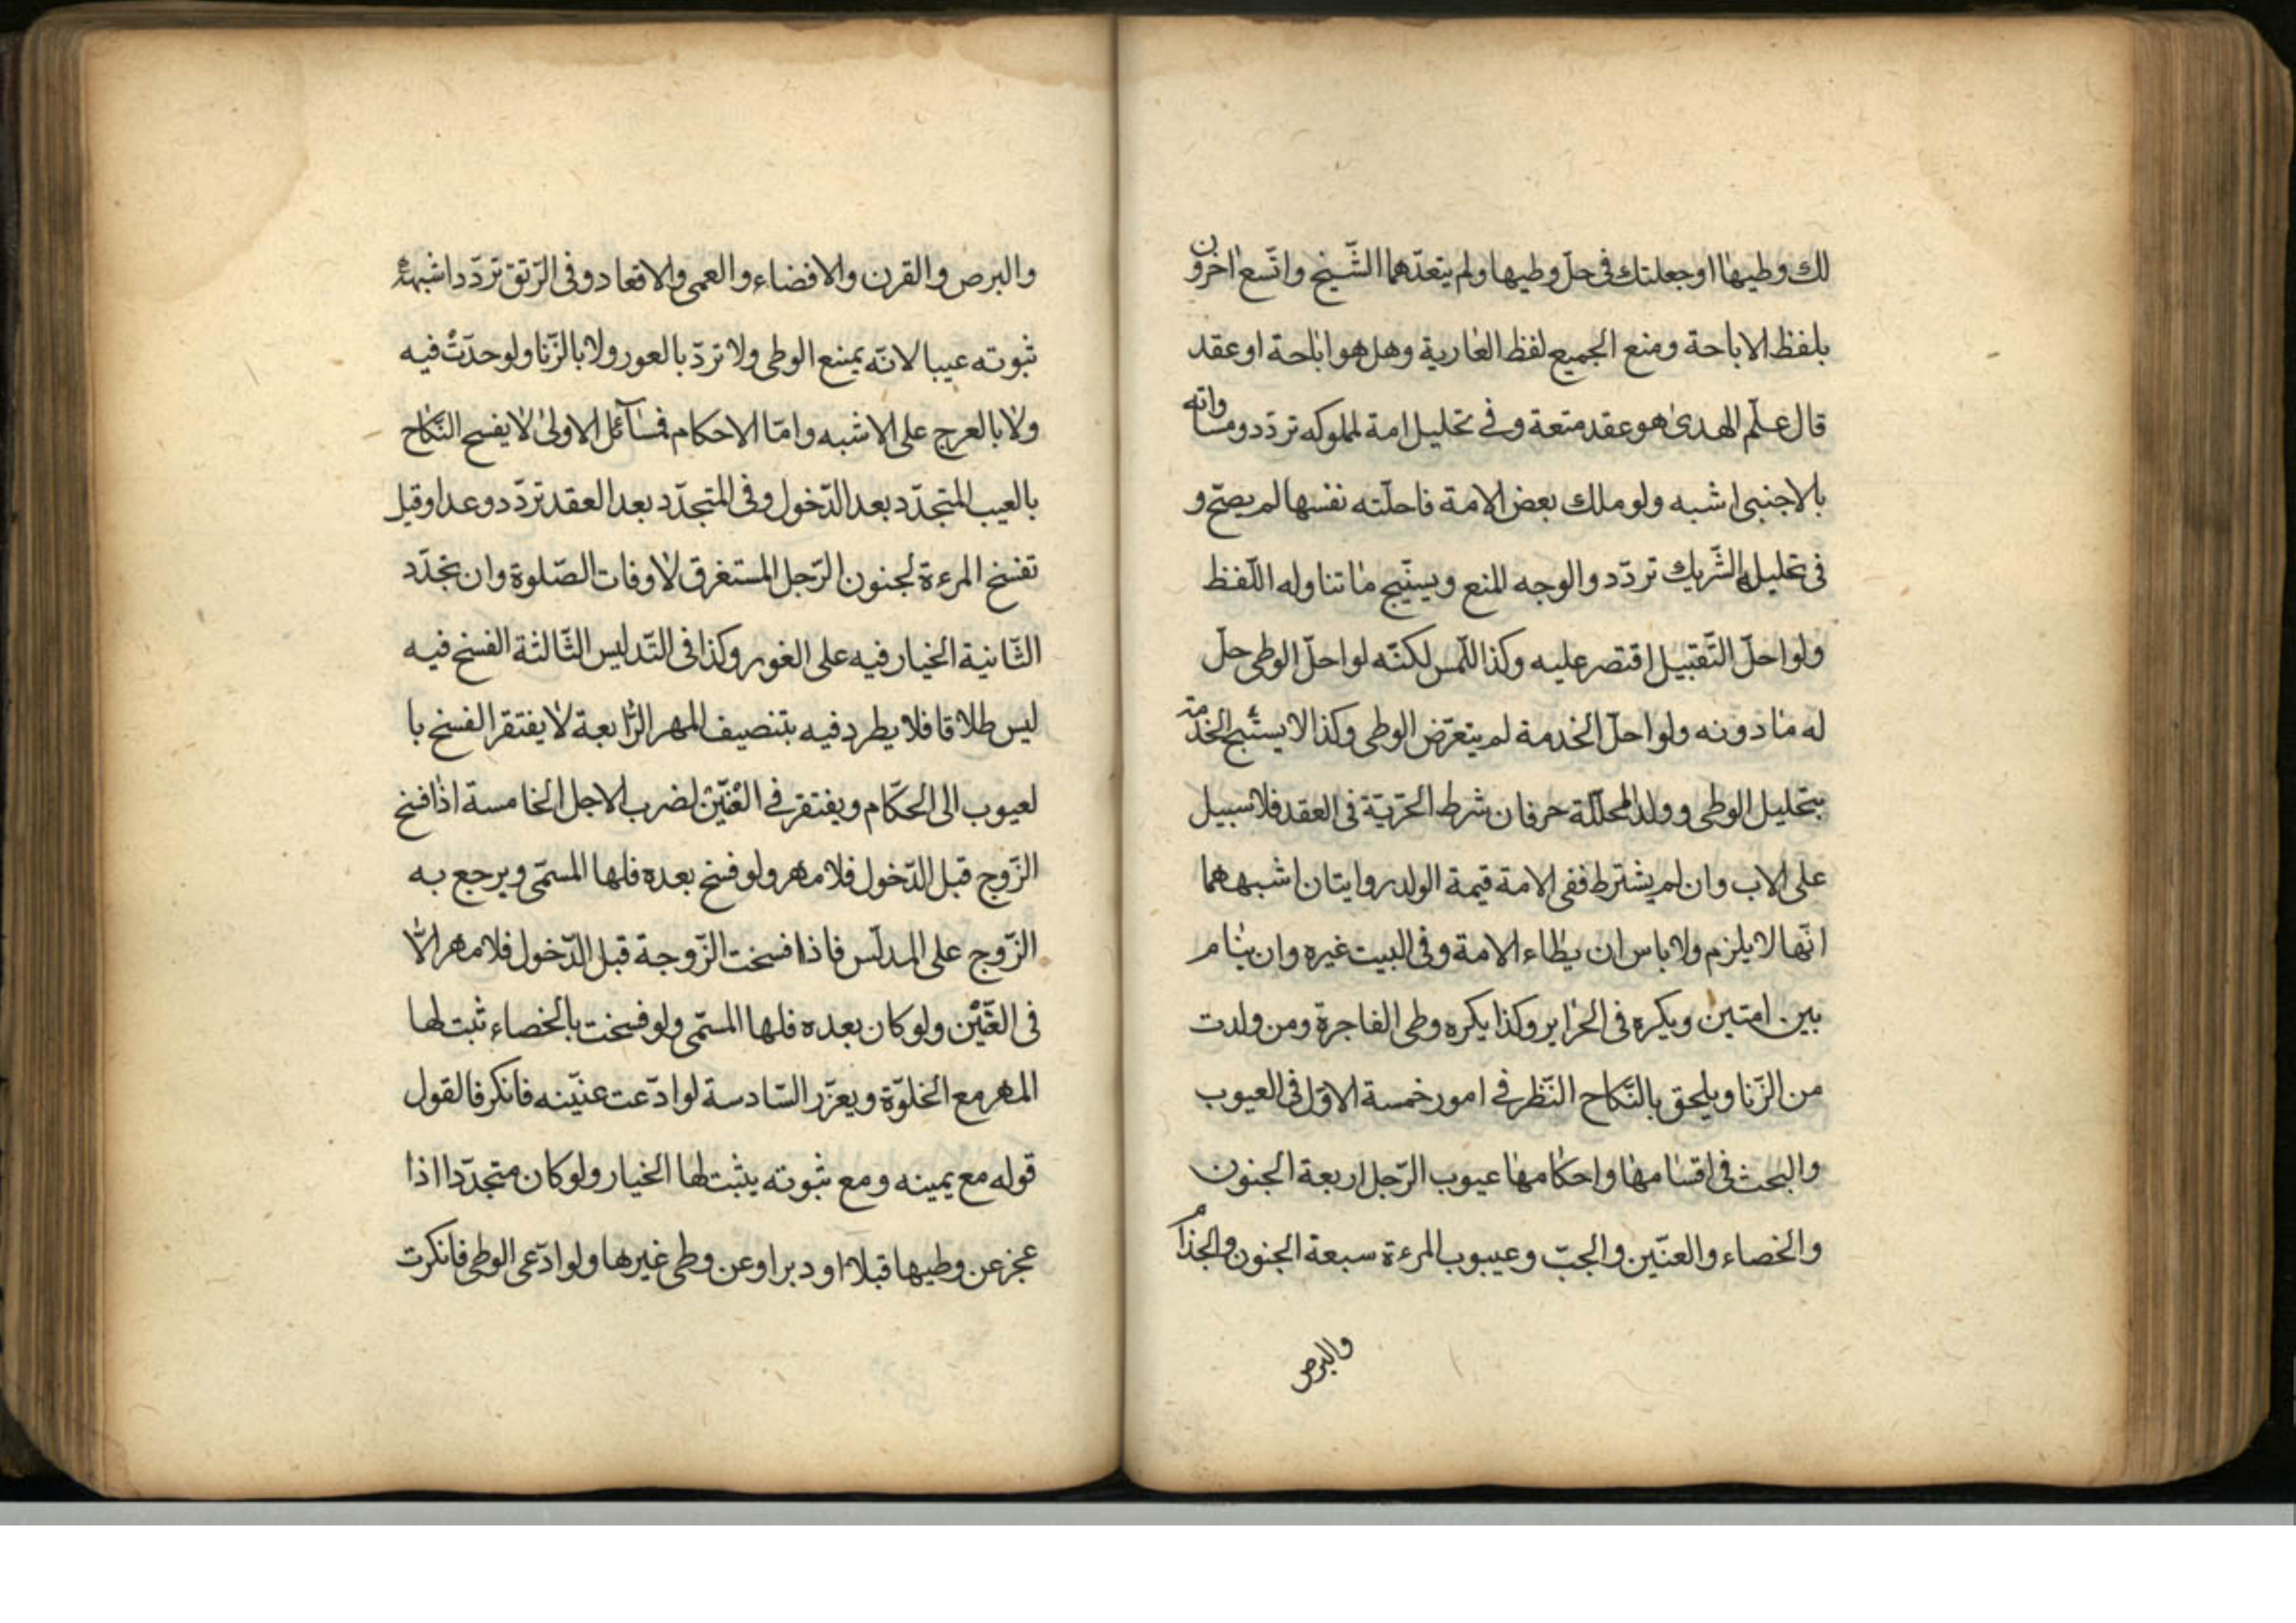 لك وطيها او جعلتك فى حلّ وطيها ولم يتعدّهما الشّيخ واتّسع اخرون
بلفظ الاباحة ومنع الجميع لفظ العارية وهل هو اباحة او عقد
قال علم الهدى هو عقد متعة وفى تحليل امة لمملوكه تردّد ومساواته
بالاجنبى اشبه ولو ملك بعض الامة فاحلّته نفسها لم يصحّ و
فى تحليل الشّريك تردّد والوجه المنع ويستبيح ما تناوله اللّفظ
ولو احلّ التّقبيل اقتصر عليه وكذا اللّمس لكنّه لو احلّ الوطى حلّ
له ما دونه ولو احلّ الخدمة لم يتعرّض الوطى وكذا لا يستبيح الخدمة
بتحليل الوطى وولد المحلّلة حر فان شرط الحرّيّة فى العقد فلا سبيل
على الاب وان لم يشترط ففى الامة قيمة الولد روايتان اشبههما
انّها لا يلزم ولا باس ان يطاء الامة وفى البيت غيره وان ينام
بين امتين ويكره فى الحراير وكذا يكره وطى الفاجرة ومن ولدت
من الزّنا ويلحق بالنّكاح النّظر فى امور خمسة الاوّل فى العيوب
والبحث فى اقسامها واحكامها عيوب الرّجل اربعة الجنون
والخصاء والعنّين والجبّ وعيبوب المرءة سبعة الجنون والجذام
والبرص
والبرص والقرن والافضاء والعمى والاقعاد وفى الرّتق تردّد اشبهه
ثبوته عيبا لانّه يمنع الوطى ولا تردّ بالعور ولا بالزّنا ولو حدّتْ فيه
ولا بالعرج على الاشبه وامّا الاحكام فمسآئل الاولى لا يفسخ النّكاح
بالعيب المتجدّد بعد الدّخول وفى المتجدّد بعد العقد تردّد وعدا وقيل
تفسخ المرءة لجنون الرّجل المستغرق لاوقات الصّلوة وان تجدّد
الثّانية الخيار فيه على الفور وكذا فى التّدليس الثّالثة الفسخ فيه
ليس طلاقا فلا يطرد فيه بتنصيف المهر الرّابعة لا يفتقر الفسخ با
لعيوب الى الحكّام ويفتقر فى العنّين لضرب الاجل الخامسة اذا فسخ
الزّوج قبل الدّخول فلا مهر ولو فسخ بعده فلها المسمّى ويرجع به
الزّوج على المدلّس فاذا فسخت الزّوجة قبل الدّخول فلا مهر الّا
فى العنّين ولو كان بعده فلها المسمّى ولو فسخت بالخصاء ثبت لها
المهر مع الخلوّة ويعزّر السّادسة لو ادّعت عنّينه فانكر فالقول
قوله مع يمينه ومع ثبوته يثبت لها الخيار ولو كان متجدّدا اذا
عجز عن وطيها قبلا او دبرا وعن وطى غيرها ولو ادّعى الوطى فانكرت